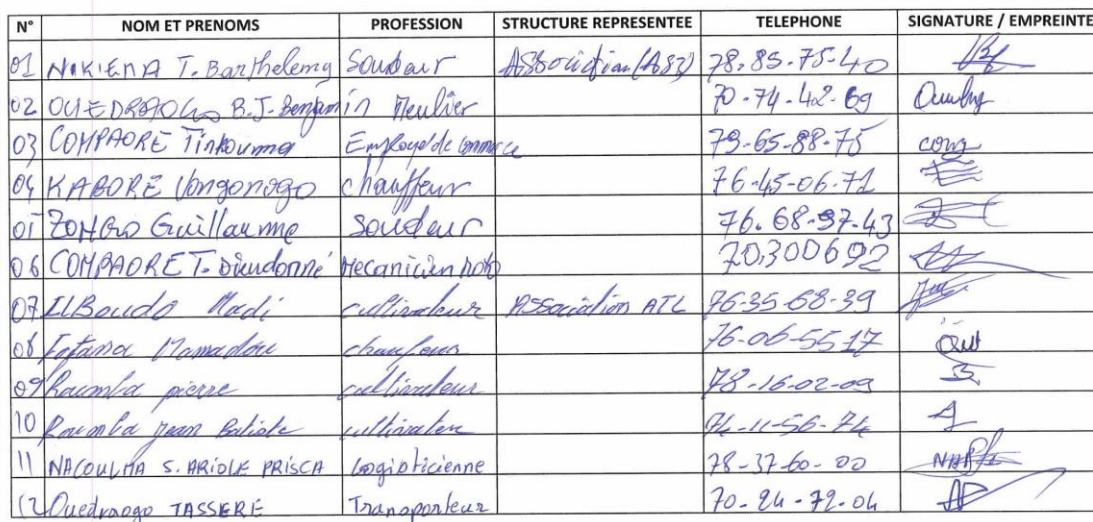 N° NOM ET PRENOMS PROFESSION STRUCTURE REPRESENTEE TELEPHONE SIGNATURE / EMPREINTE
01 NIKIEMA T. Barthelemy Soudeur Association (AS3) 78.85.75-40
02 OUEDRAOGO B.J. Benjamin Meulier 70-74-42-69
03 COMPAORE Tinkouma Employé de commerce 79-65-88-75
04 KABORE Vongonogo chauffeur 76-45-06-71
05 ZONGO Guillaume Soudeur 76.68-97-43
06 COMPAORE T. Dieudonné Mecanicien moto 70300692
07 ILBoudo Madi cultivateur Association ATL 76-35-68-39
08 Fofana Mamadou chauffeur 76-06-55-17
09 Roumba pierre cultivateur 78-16-02-09
10 Roumba jean Batiste cultivateur 74-11-56-74
11 NACOULMA S. ARIOLE PRISCA Logisticienne 78-37-60-00
12 Ouedraogo TASSERE Transporteur 70-24-72-04